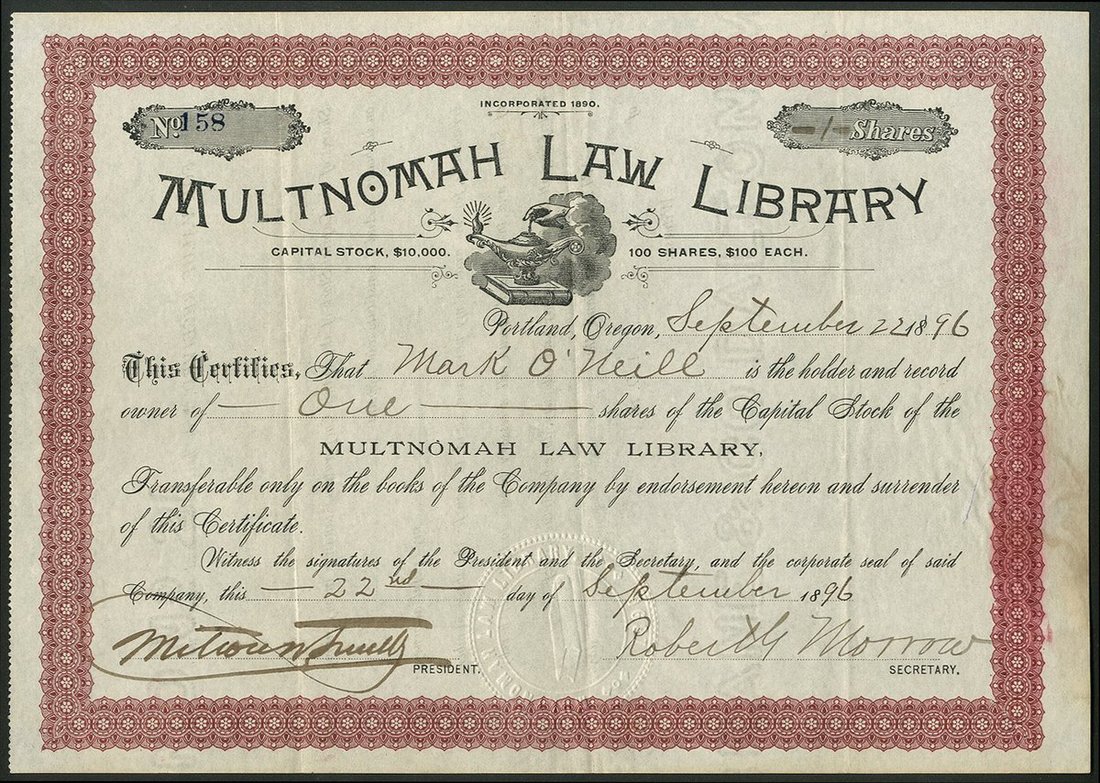 INCORPORATED 1890.
No. 158
-1- Shares
MULTNOMAH LAW LIBRARY
CAPITAL STOCK, $10,000. 100 SHARES, $100 EACH.
Portland, Oregon, September 22 1896
This Certifies, That Mark O'Neill is the holder and record
owner of — One — shares of the Capital Stock of the
MULTNOMAH LAW LIBRARY,
Transferable only on the books of the Company by endorsement hereon and surrender
of this Certificate.
Witness the signatures of the President and the Secretary, and the corporate seal of said
Company, this — 22nd — day of September 1896
Robert G Morrow
PRESIDENT.
SECRETARY.